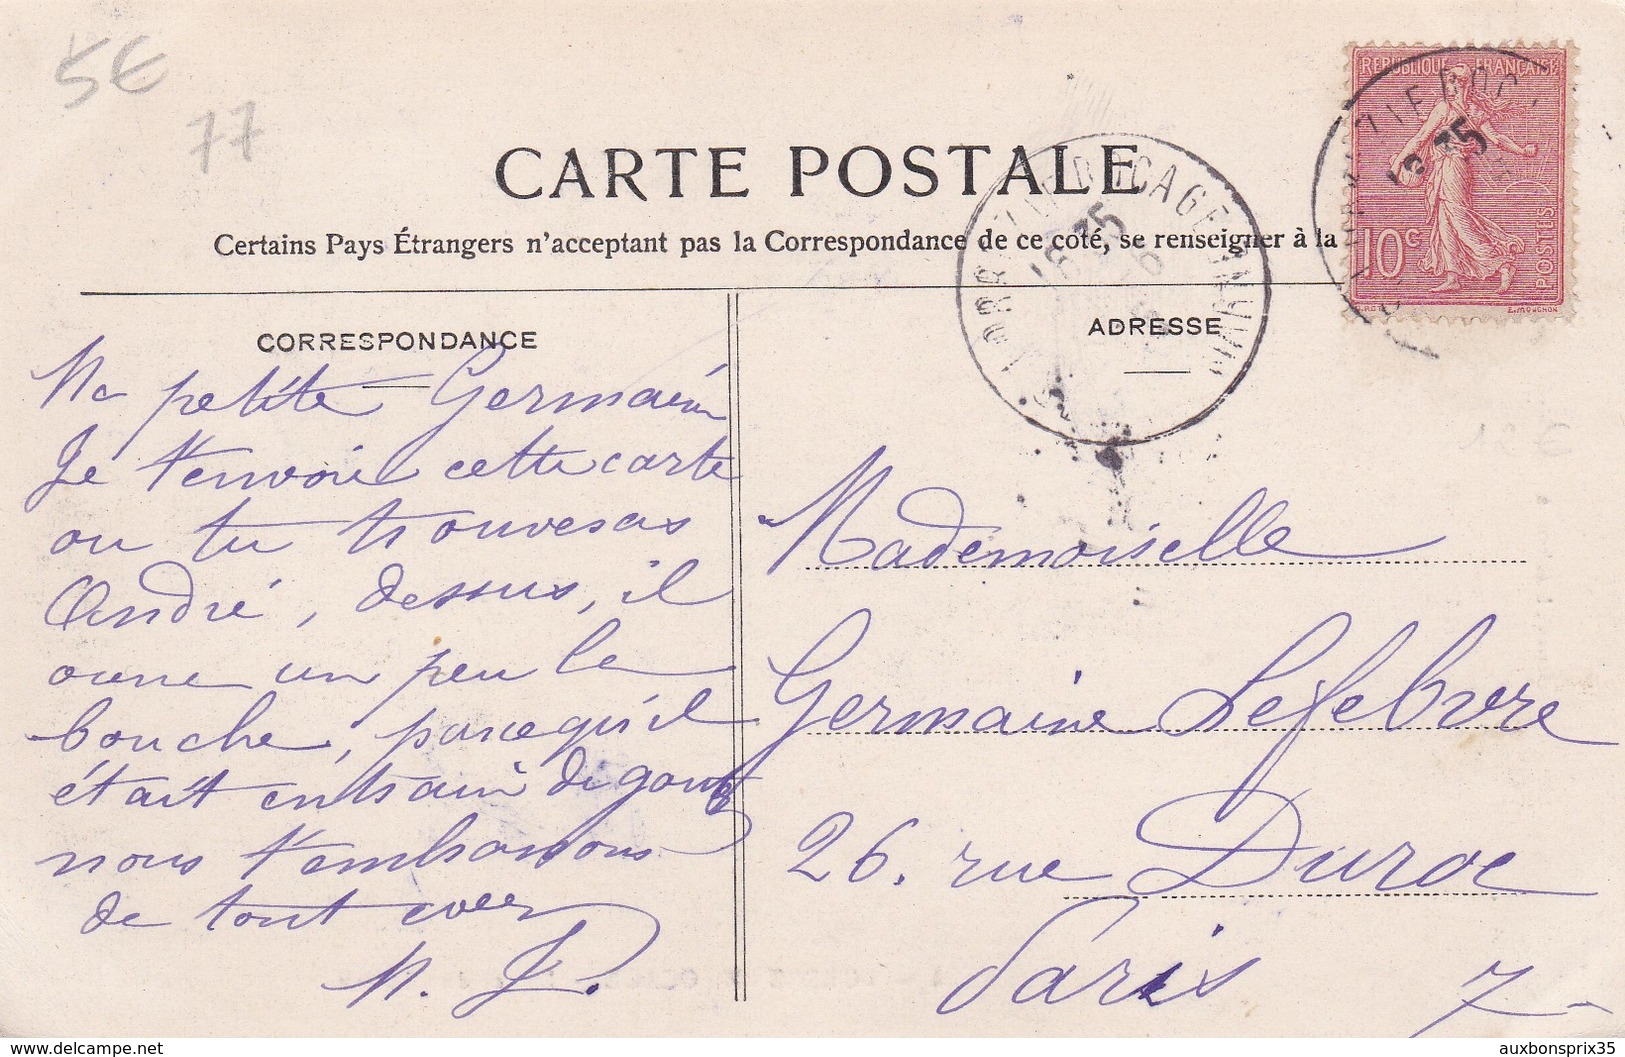 5€
77
CARTE POSTALE
Certains Pays Étrangers n'acceptant pas la Correspondance de ce coté, se renseigner à la
REPUBLIQUE FRANÇAISE
10c
POSTES
E.MOUCHON
18 35
18 35
CORRESPONDANCE
Ma petite Germaine
Je t'envoie cette carte
ou tu trouveras
André, dessus, il
ouvre un peu la
bouche, parcequ'il
était entrain de gouter
nous t'embrassons
de tout cœur
ADRESSE
Mademoiselle
Germaine Lefebvre
26. rue Duroc
Paris 7
auxbonsprix35